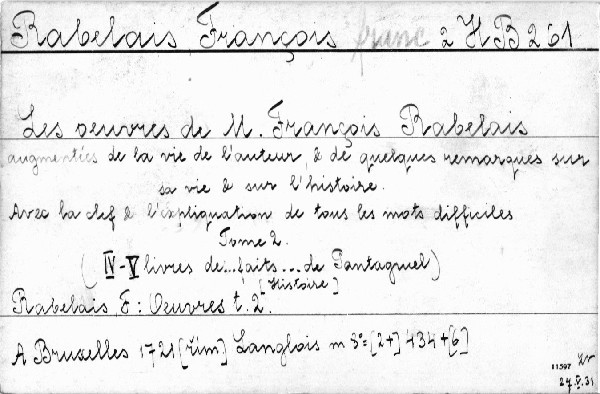 Rabelais François franc 2 H B 261
Les oeuvres de M. François Rabelais
augmentées de la vie de l'auteur & de quelques remarques sur
sa vie & sur l'histoire.
Avec la clef & l'expliquation de tous les mots difficiles
Tome 2.
(IV-V livres de...faits...de Pantagruel)
[Histoire]
Rabelais, F: Oeuvres t. 2.
A Bruxelles 1721 [Řím] Langlois m 8º=[2+] 434+[6]
11597
27.V.31